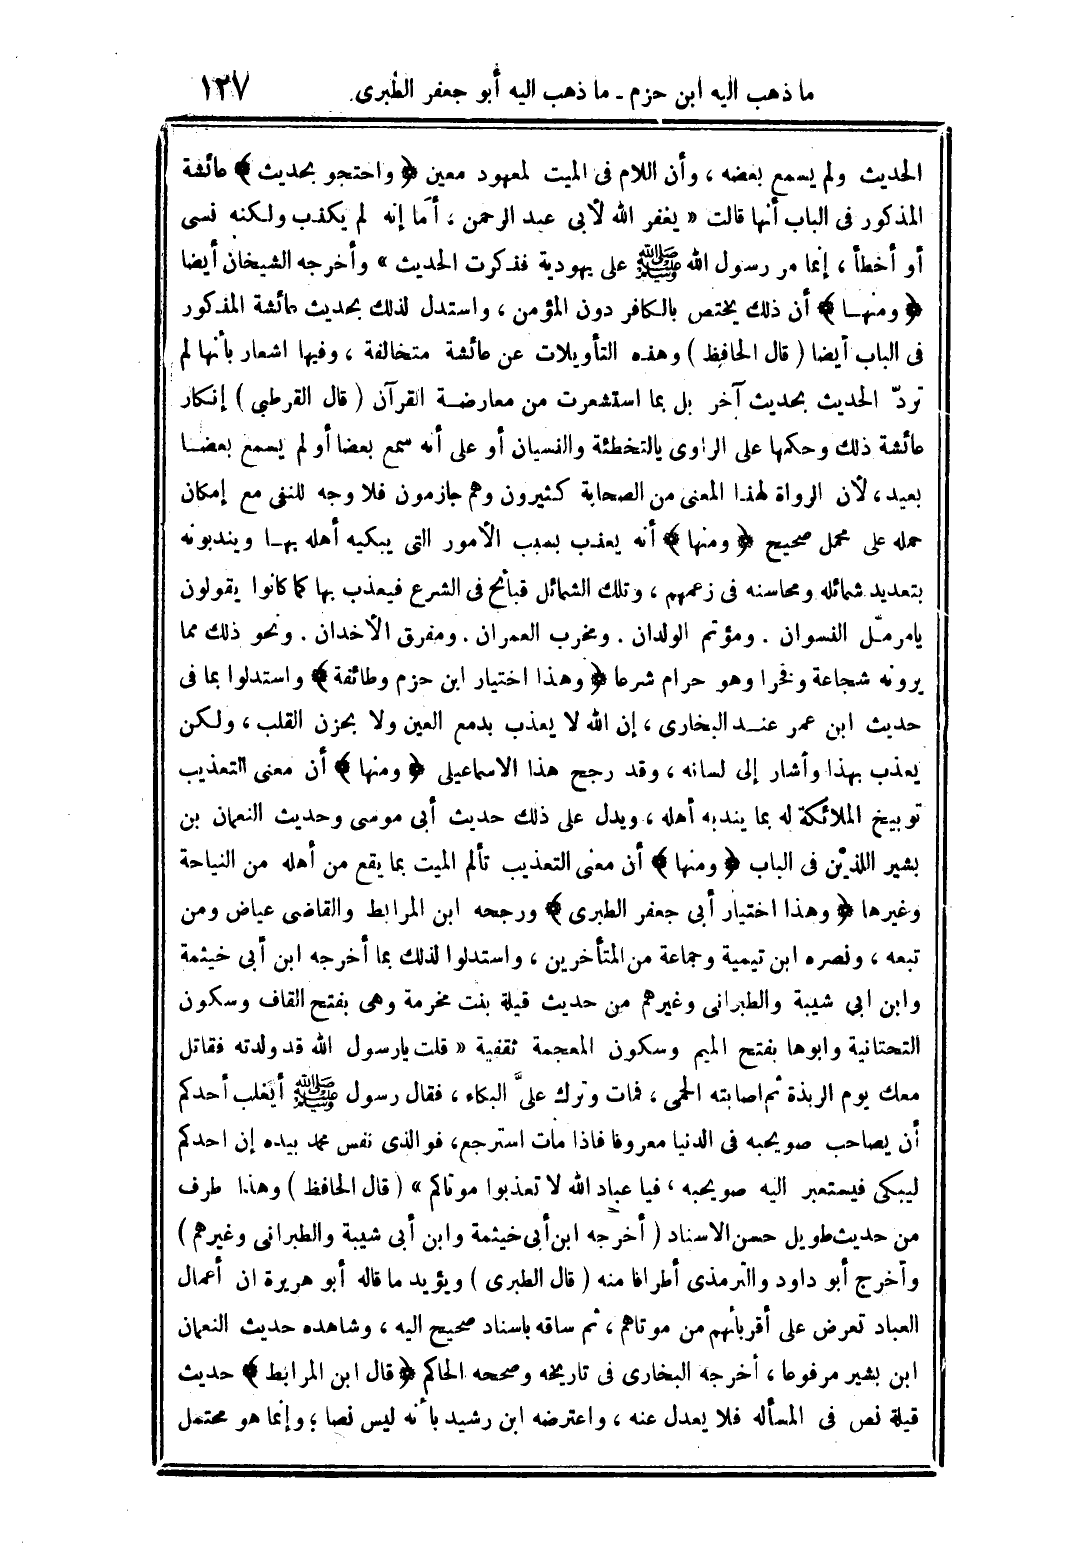 ما ذهب اليه ابن حزم ـ ما ذهب اليه أبو جعفر الطبرى. ١٢٧
الحديث ولم يسمع بعضه ، وأن اللام فى الميت لمعهود معين ﴿ واحتجو بحديث ﴾ عائشة
المذكور فى الباب أنها قالت « يغفر الله لأبى عبد الرحمن ، أما إنه لم يكذب ولكنه نسى
أو أخطأ ، إنما مر رسول الله ﷺ على يهودية فذكرت الحديث » وأخرجه الشيخان أيضا
﴿ ومنهـا ﴾ أن ذلك يختص بالكافر دون المؤمن ، واستدل لذلك بحديث عائشة المذكور
فى الباب أيضا ( قال الحافظ ) وهذه التأويلات عن عائشة متخالفة ، وفيها اشعار بأنها لم
تردّ الحديث بحديث آخر بل بما استشعرت من معارضة القرآن ( قال القرطبى ) إنكار
عائشة ذلك وحكمها على الراوى بالتخطئة والنسيان أو على أنه سمع بعضا أو لم يسمع بعضـا
بعيد ، لأن الرواة لهذا المعنى من الصحابة كثيرون وهم جازمون فلا وجه للنفى مع إمكان
حمله على محمل صحيح ﴿ ومنها ﴾ أنه يعذب بسبب الأمور التى يبكيه أهله بهـا ويندبونه
بتعديد شمائله ومحاسنه فى زعمهم ، وتلك الشمائل قبائح فى الشرع فيعذب بها كما كانوا يقولون
يامرمّل النسوان . ومؤتم الولدان . ومخرب العمران . ومفرق الأخدان . ونحو ذلك مما
يرونه شجاعة وفخرا وهو حرام شرعا ﴿ وهذا اختيار ابن حزم وطائفة ﴾ واستدلوا بما فى
حديث ابن عمر عنـد البخارى ، إن الله لا يعذب بدمع العين ولا بحزن القلب ، ولكن
يعذب بهذا وأشار إلى لسانه ، وقد رجح هذا الاسماعيلى ﴿ ومنها ﴾ أن معنى التعذيب
توبيخ الملائكة له بما يندبه أهله ، ويدل على ذلك حديث أبى موسى وحديث النعمان بن
بشير اللذيْن فى الباب ﴿ ومنها ﴾ أن معنى التعذيب تألم الميت بما يقع من أهله من النياحة
وغيرها ﴿ وهذا اختيار أبى جعفر الطبرى ﴾ ورجحه ابن المرابط والقاضى عياض ومن
تبعه ، ونصره ابن تيمية وجماعة من المتأخرين ، واستدلوا لذلك بما أخرجه ابن أبى خيثمة
وابن ابي شيبة والطبرانى وغيرهم من حديث قيلة بنت مخرمة وهى بفتح القاف وسكون
التحتانية وابوها بفتح الميم وسكون المعجمة ثقفية « قلت يارسول الله قد ولدته فقاتل
معك يوم الربذة ثم اصابته الحمى ، فمات وترك علىَّ البكاء ، فقال رسول ﷺ أيغلب أحدكم
أن يصاحب صويحبه فى الدنيا معروفا فاذا مات استرجع، فوالذى نفس محمد بيده إن احدكم
ليبكى فيستعبر اليه صويحبه ، فيا عباد الله لا تعذبوا موتاكم » ( قال الحافظ ) وهذا طرف
من حديث طويل حسن الاسناد ( أخرجه ابن أبى خيثمة وابن أبى شيبة والطبرانى وغيرهم )
وأخرج أبو داود والترمذى أطرافا منه ( قال الطبرى ) ويؤيد ما قاله أبو هريرة ان أعمال
العباد تعرض على أقربائهم من موتاهم ، ثم ساقه باسناد صحيح اليه ، وشاهده حديث النعمان
ابن بشير مرفوعا ، أخرجه البخارى فى تاريخه وصححه الحاكم ﴿ قال ابن المرابط ﴾ حديث
قيلة نص فى المسأله فلا يعدل عنه ، واعترضه ابن رشيد بأنه ليس نصا ؛ وإنما هو محتمل